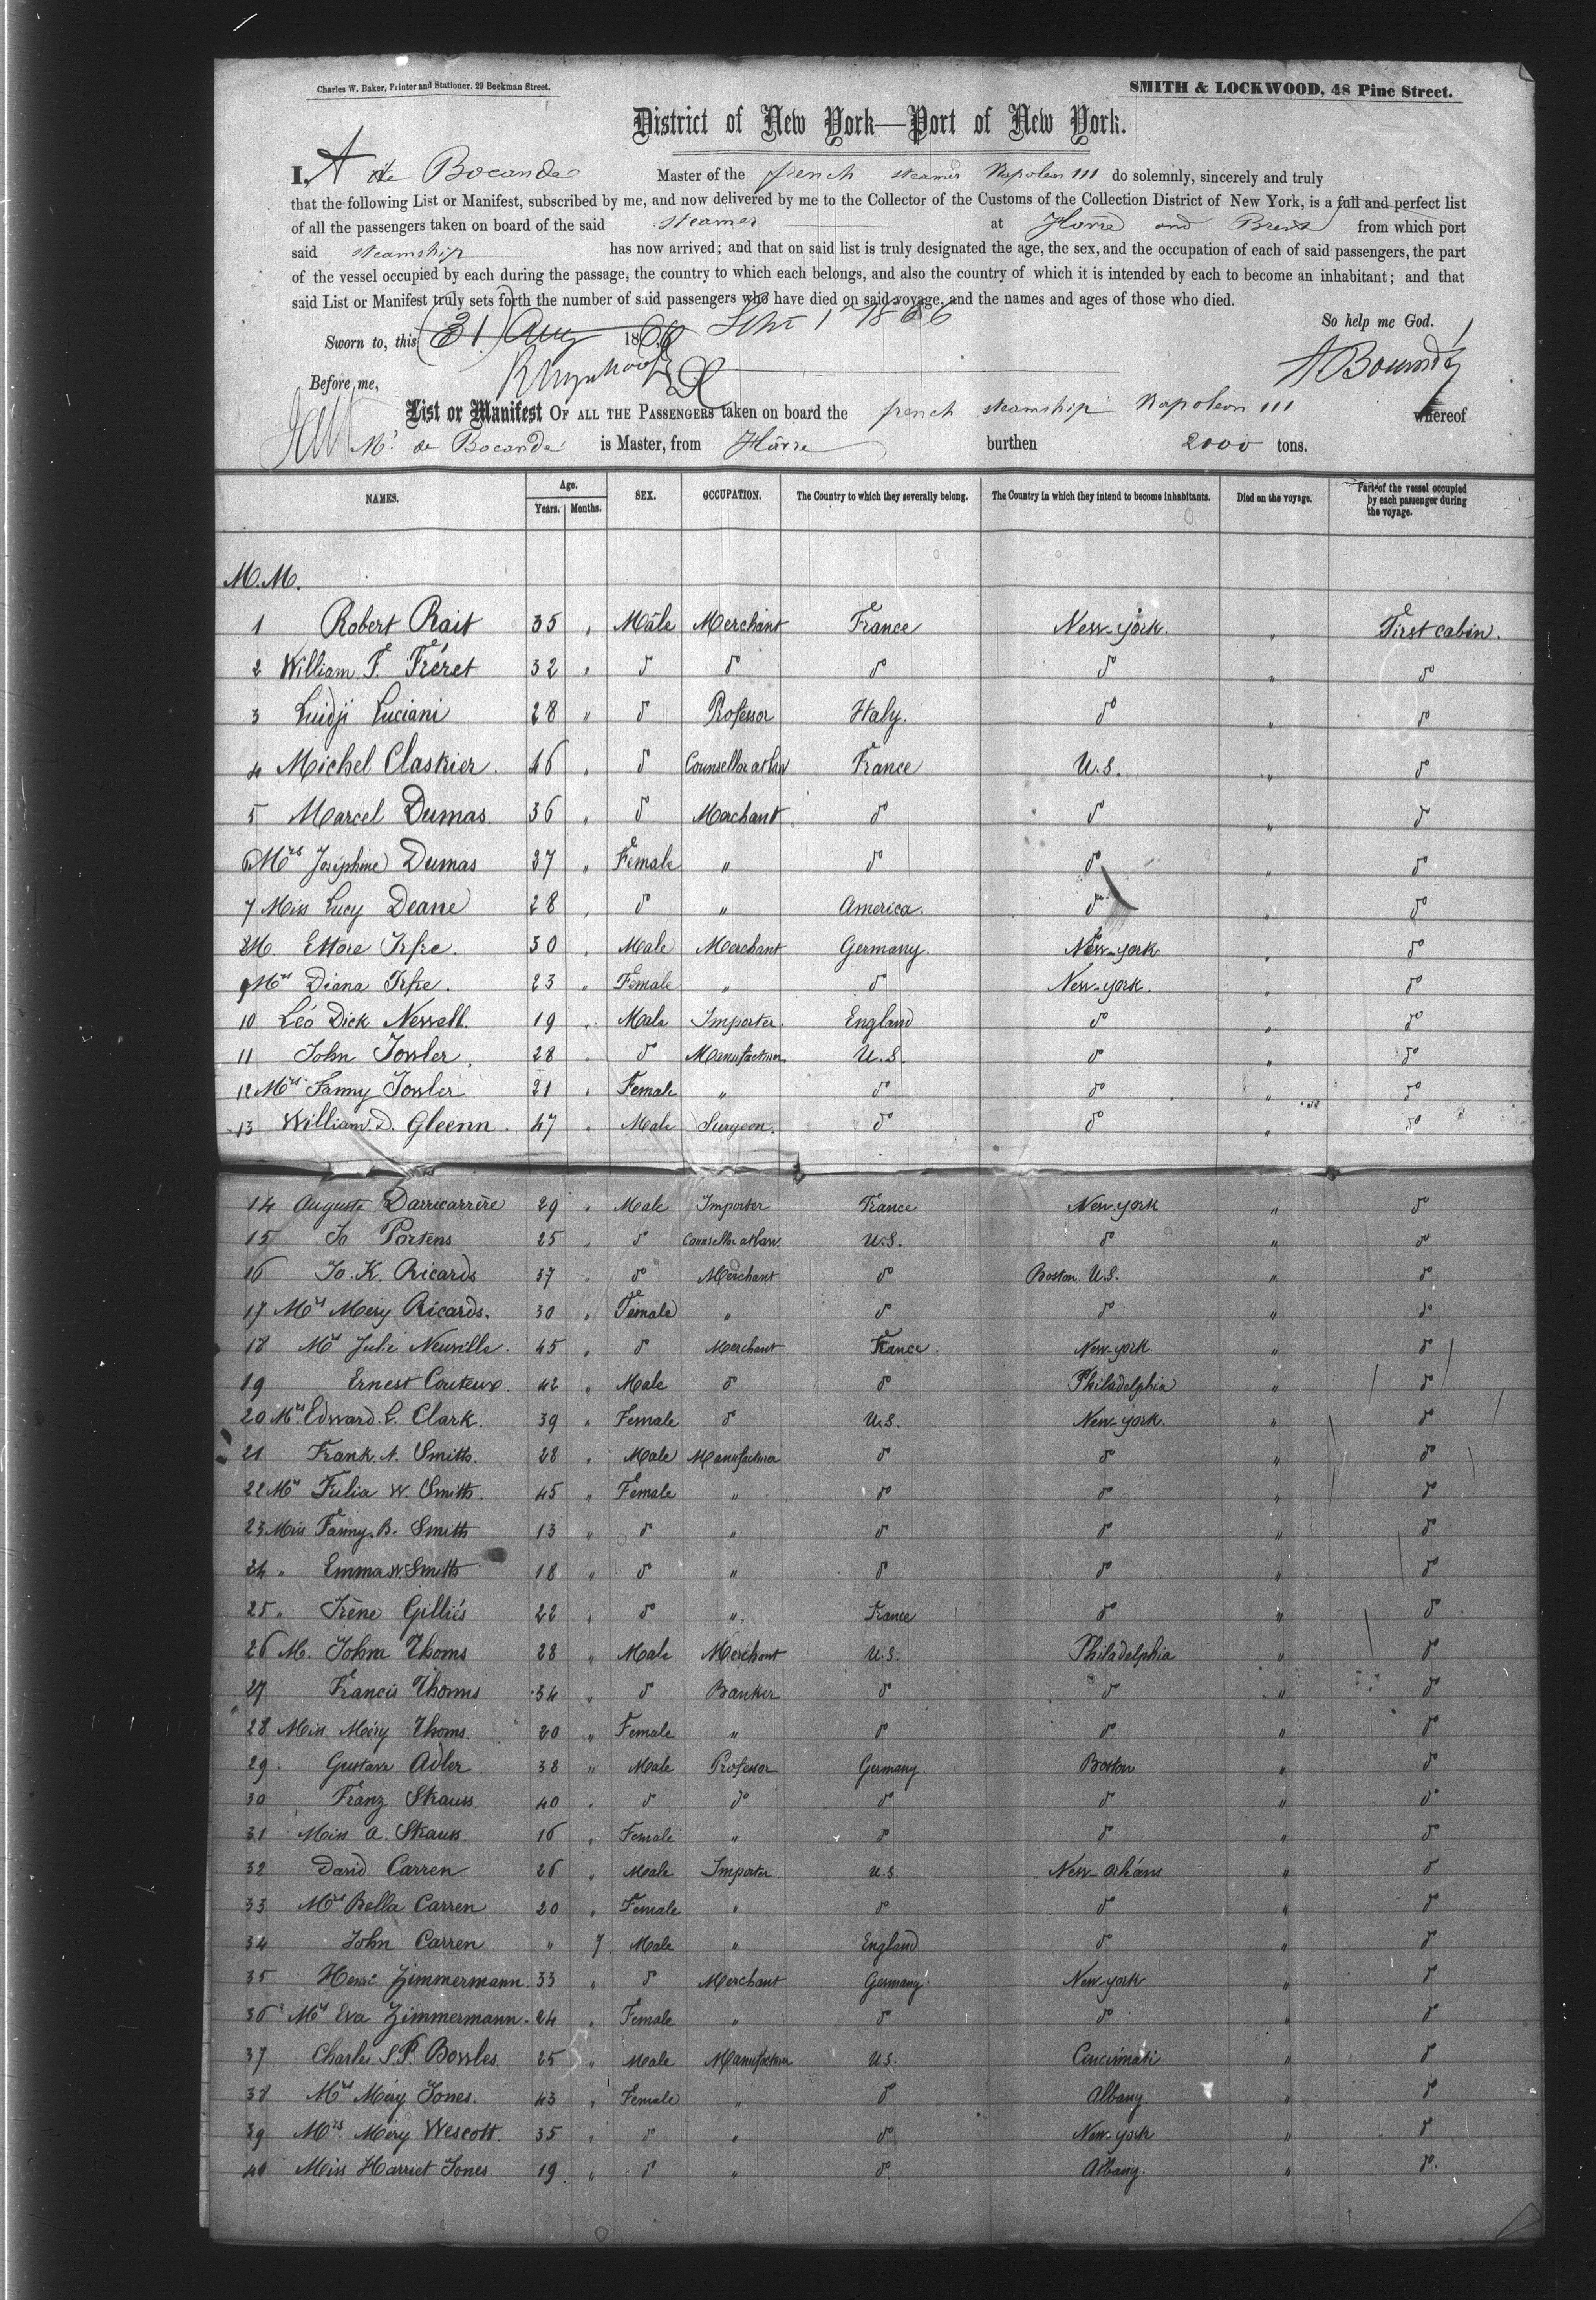 Charles W. Baker, Printer and Stationer, 29 Beekman Street.
SMITH & LOCKWOOD, 48 Pine Street.
District of New York—Port of New York.
I, A de Bocandé Master of the french steamer Napoleon III do solemnly, sincerely and truly
that the following List or Manifest, subscribed by me, and now delivered by me to the Collector of the Customs of the Collection District of New York, is a full and perfect list
of all the passengers taken on board of the said steamer at Hâvre and Brest from which port
said steamship has now arrived; and that on said list is truly designated the age, the sex, and the occupation of each of said passengers, the part
of the vessel occupied by each during the passage, the country to which each belongs, and also the country of which it is intended by each to become an inhabitant; and that
said List or Manifest truly sets forth the number of said passengers who have died on said voyage, and the names and ages of those who died.
So help me God.
Sworn to, this (31) Aug 1866 Sept 1st 1866
Before me,
List or Manifest OF ALL THE PASSENGERS taken on board the french steamship Napoleon III whereof
Mr de Bocandé is Master, from Hâvre burthen 2000 tons.
NAMES. Age. Years. Months. SEX. OCCUPATION. The Country to which they severally belong. The Country in which they intend to become inhabitants. Died on the voyage. Part of the vessel occupied by each passenger during the voyage.
M.M.
1 Robert Rait 35 " Mâle Merchant France New-york. " First cabin.
2 William F. Fréret 32 " do do do do " do
3 Luidji Luciani 28 " do Professor Italy. do " do
4 Michel Claskier. 46 " do Counsellor at law France U.S. " do
5 Marcel Dumas. 36 " do Merchant do do " do
6 Mrs Joséphine Dumas 27 " Female " do do " do
7 Miss Lucy Deane 28 " do " America. do " do
8 M. Ettore Irfre. 30 " Male Merchant Germany. New-york " do
9 Mrs Diana Irfre. 23 " Female " do New-york. " do
10 Léo Dick Newell. 19 " Male Importer. England do " do
11 John Fowler. 28 " do Manufacturer U.S. do " do
12 Mrs Fanny Fowler. 21 " Female " do do " do
13 William D. Gleenn. 47 " Male Surgeon. do do " do
14 Auguste Darricarrère 29 " Male Importer France New-york " do
15 Jo Portens 25 " do Counsellor at law. U.S. do " do
16 Jo. K. Ricards 37 " do Merchant do Boston U.S. " do
17 Mrs Mery Ricards. 30 " Female " do do " do
18 Mrs Julie Neuville. 45 " do Merchant France. New-york " do
19 Ernest Couteux. 42 " Male do do Philadelphia " do
20 Mrs Edward. L. Clark. 39 " Female do U.S. New-york. " do
21 Frank. A. Smith. 28 " Male Manufacturer do do " do
22 Mrs Julia W. Smith. 45 " Female " do do " do
23 Miss Fanny. B. Smith 13 " do " do do " do
24 " Emma W. Smith 18 " do " do do " do
25 " Irène Gilliés 22 " do " France do " do
26 M. Johm Thoms 28 " Male Merchant U.S. Philadelphia " do
27 Francis Thoms 34 " do Banker do do " do
28 Miss Méry Thoms. 20 " Female " do do " do
29 Gustave Adler 38 " Male Professor Germany. Boston " do
30 Franz Strauss 40 " do do do do " do
31 Miss A. Strauss. 16 " Female " do do " do
32 David Carren 26 " Male Importer U.S. New-orléans " do
33 Mrs Bella Carren 20 " Female " do do " do
34 John Carren " 7 Male " England do " do
35 Henri Zimmermann. 33 " do Merchant Germany. New-york " do
36 Mrs Eva Zimmermann. 24 " Female " do do " do
37 Charles S.P. Bowles. 25 " Male Manufacturer U.S. Cincinnati " do
38 Mrs Méry Jones. 43 " Female " do Albany. " do
39 Mrs Méry Wescott. 35 " do " do New-york " do
40 Miss Harriet Jones. 19 " do " do Albany. " do.